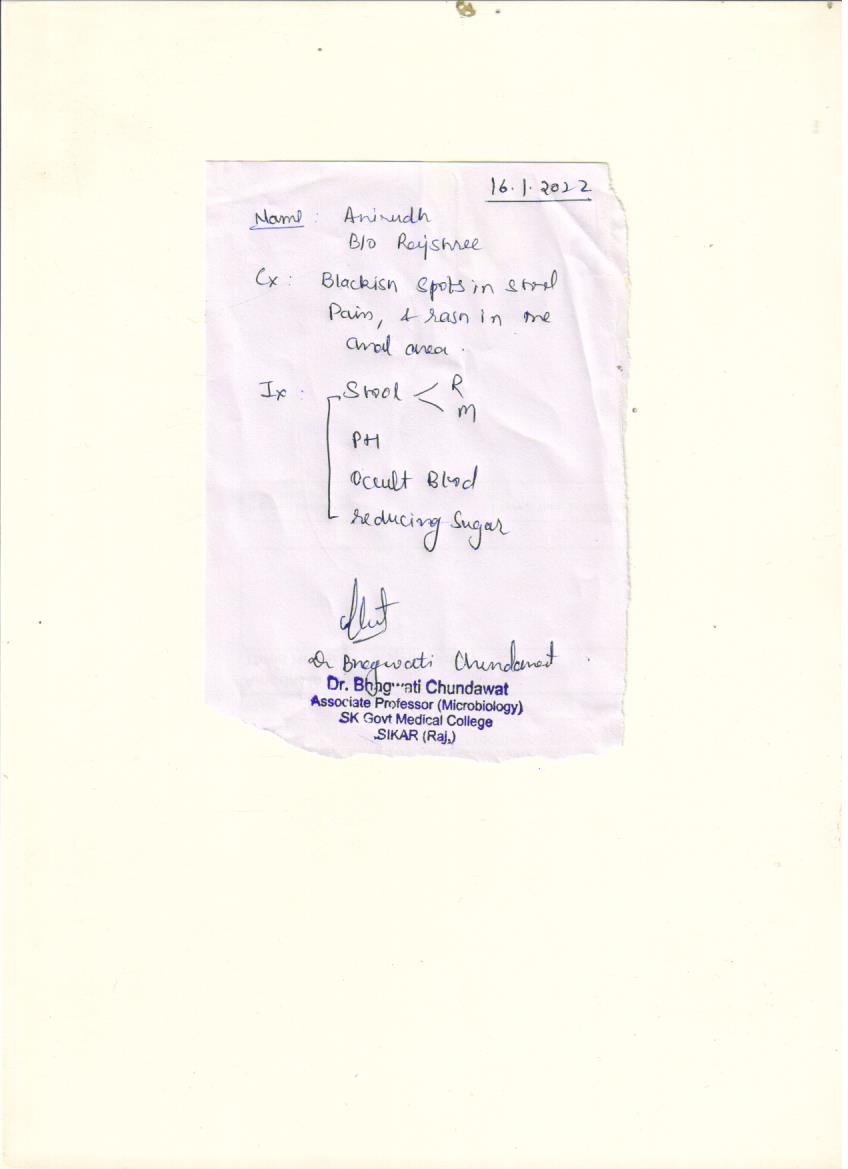 16.1.2022
Name : Anirudh
B/o Rajshree
Cx : Blackish spots in stool
Pain, & rash in the
anal area.
Ix : Stool < R
M
PH
Occult Blood
reducing Sugar
Dr Bhagwati Chundawat
Dr. Bhagwati Chundawat
Associate Professor (Microbiology)
SK Govt Medical College
SIKAR (Raj.)